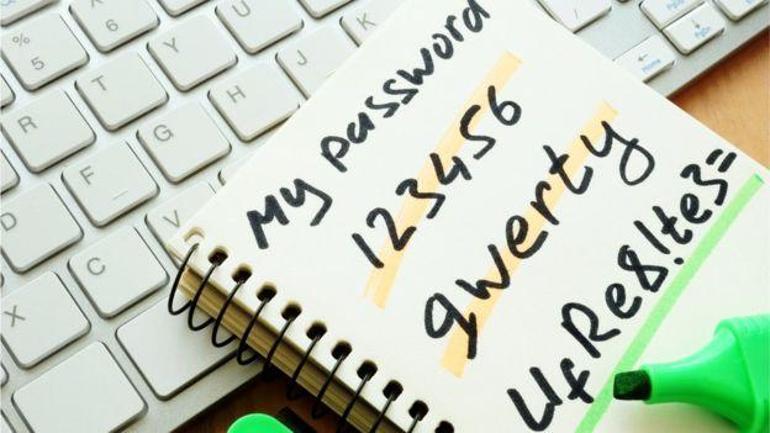 My password
123456
qwerty
UfRe8!te3=
% 5
^ 6
R
T
Y
U
D
F
G
H
J
K
X
C
V
Home
PgDn